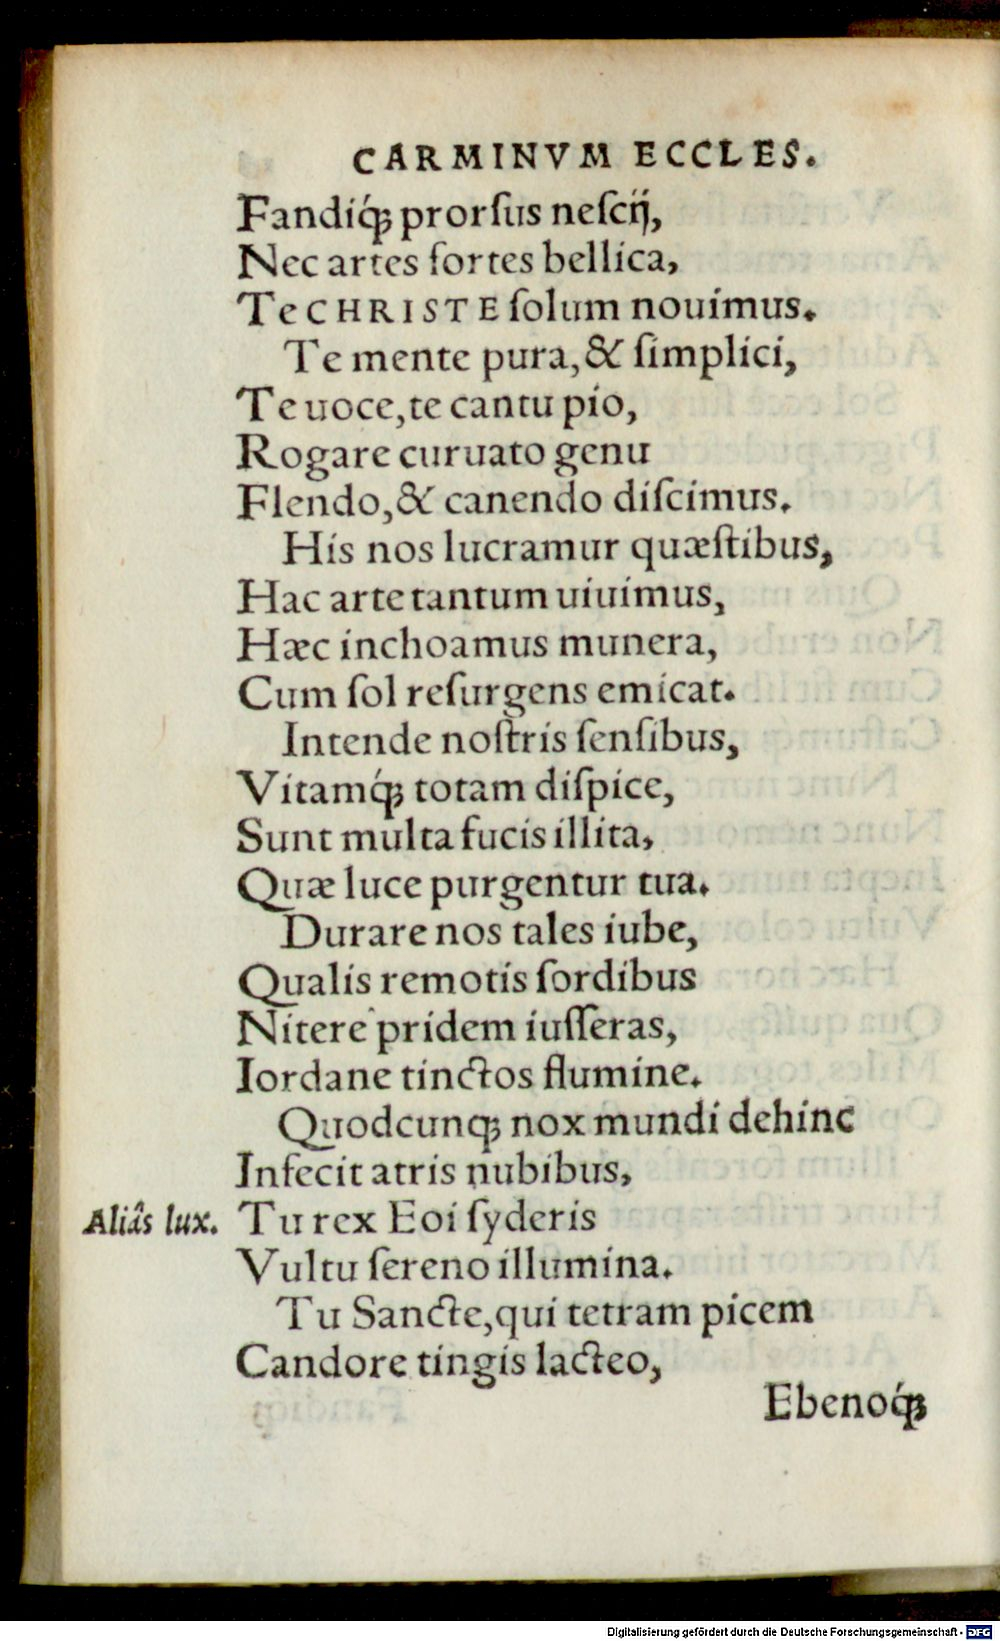 CARMINVM ECCLES.
Fandiq́; prorſus neſcij,
Nec artes ſortes bellica,
Te CHRISTE ſolum nouimus.
Te mente pura, & ſimplici,
Te uoce, te cantu pio,
Rogare curuato genu
Flendo, & canendo diſcimus.
His nos lucramur quæſtibus,
Hac arte tantum uiuimus,
Hæc inchoamus munera,
Cum ſol reſurgens emicat.
Intende noſtris ſenſibus,
Vitamq́; totam diſpice,
Sunt multa fucis illita,
Quæ luce purgentur tua.
Durare nos tales iube,
Qualis remotis ſordibus
Nitere pridem iuſſeras,
Iordane tinctos flumine.
Quodcunq; nox mundi dehinc
Infecit atris nubibus,
Aliâs lux. Tu rex Eoi ſyderis
Vultu ſereno illumina.
Tu Sancte, qui tetram picem
Candore tingis lacteo,
Ebenoq́;
Digitalisierung gefördert durch die Deutsche Forschungsgemeinschaft - DFG